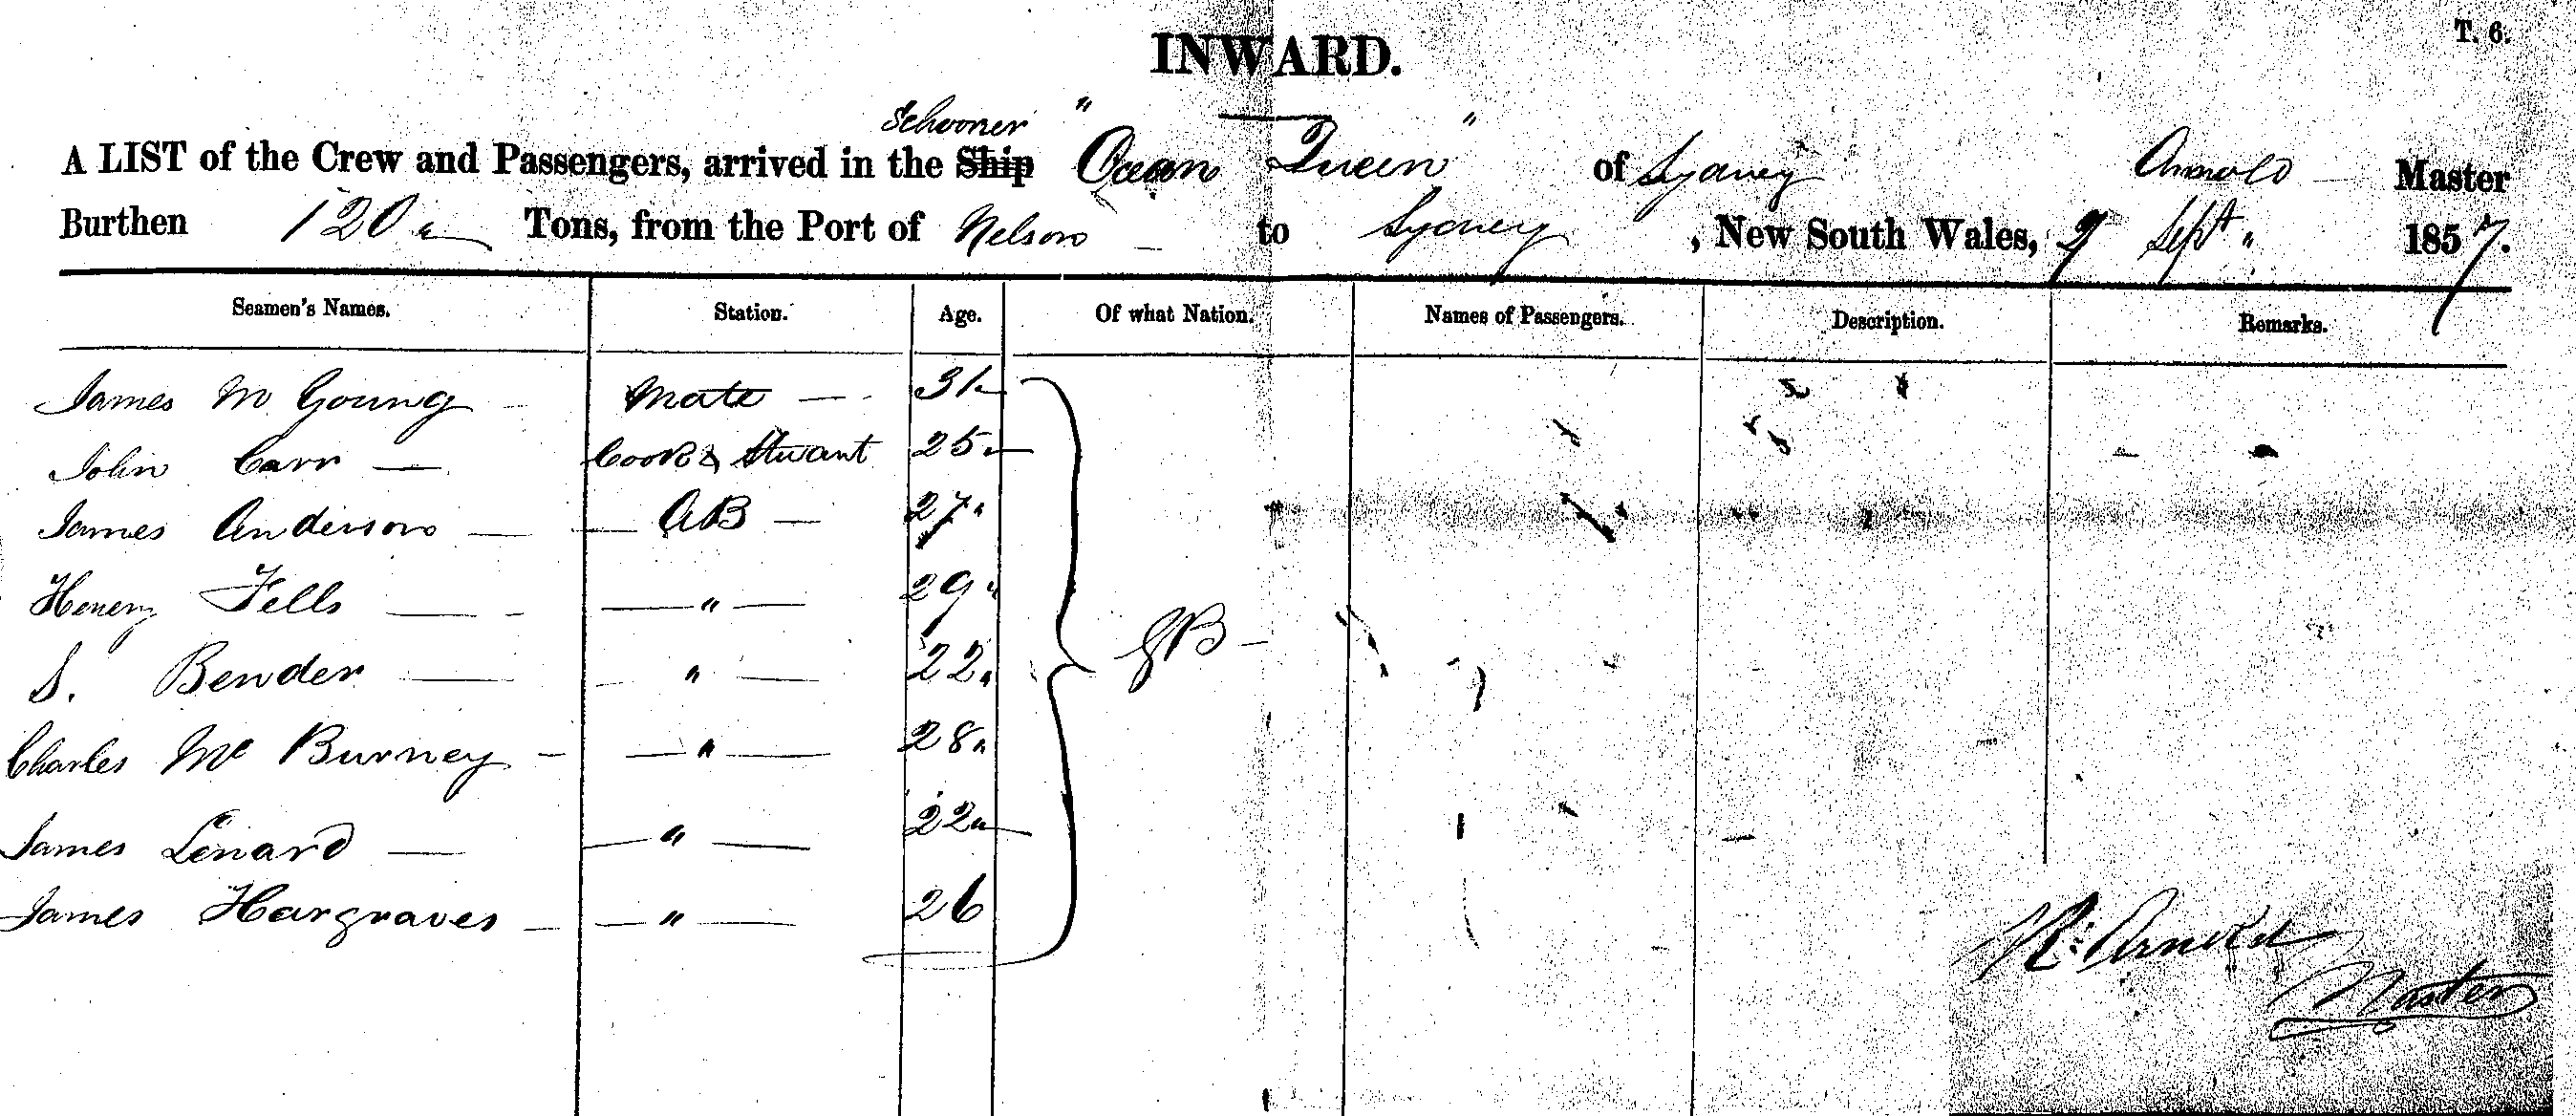 T. 6.
INWARD.
Schooner
A LIST of the Crew and Passengers, arrived in the Ship "Ocean Queen" of Sydney Arnold Master
Burthen 120 Tons, from the Port of Nelson to Sydney, New South Wales, 9 Sept 1857.
Seamen's Names. Station. Age. Of what Nation. Names of Passengers. Description. Remarks.
James M Goung Mate 31
John Carr Cook & Stuart 25
James Anderson AB 27
Henery Fells " 29
S. Bender " 22
GB
Charles Mc Burney " 28
James Lenard " 22
James Hargraves " 26
R. Arnold
Master